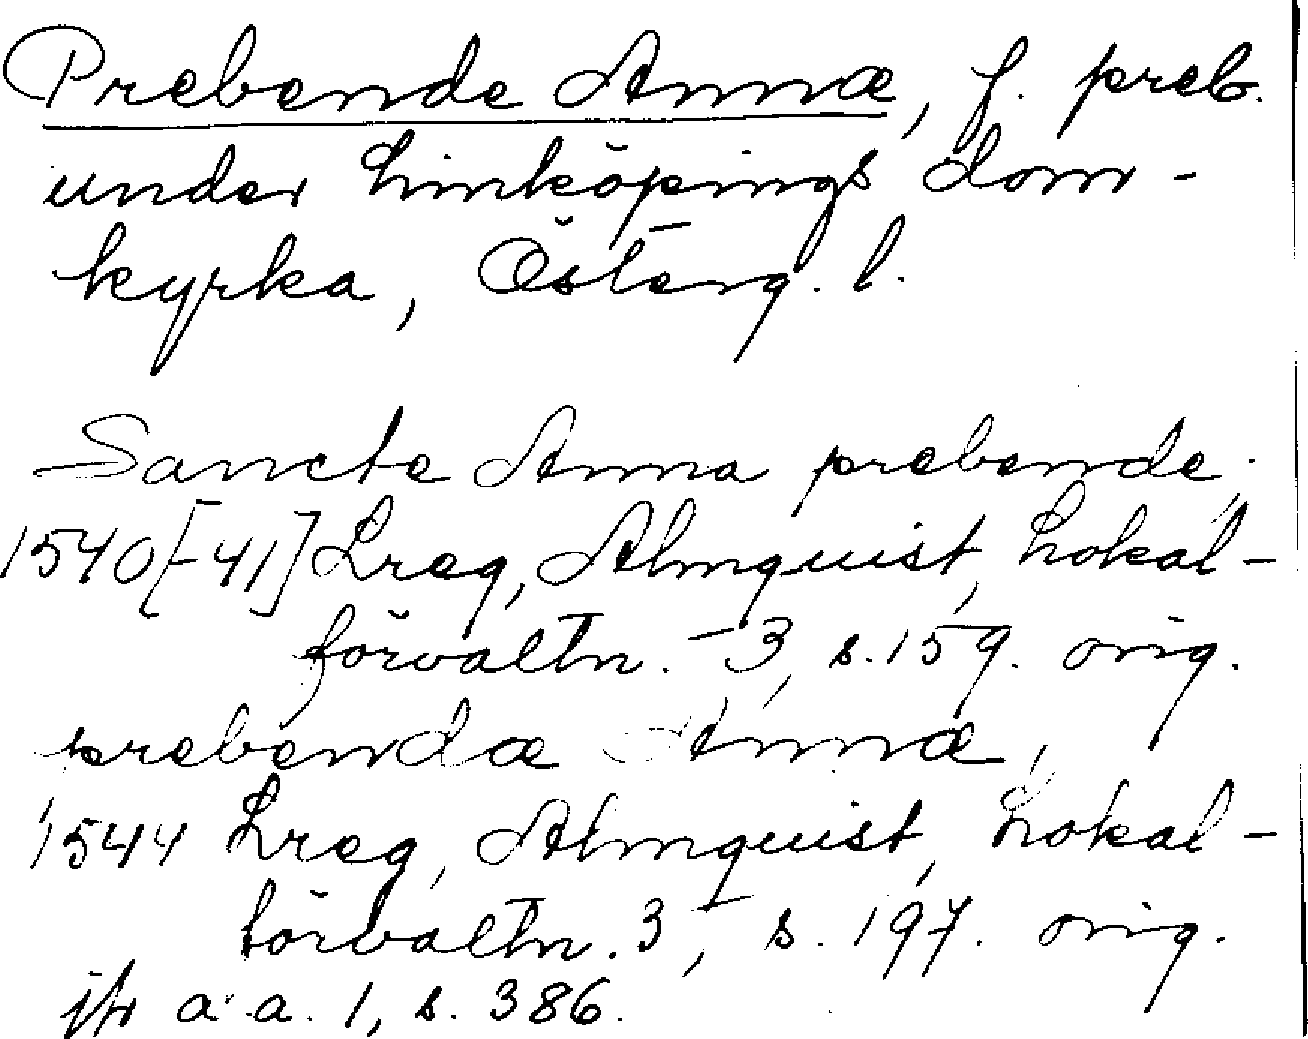 Prebende Annæ, f. preb.
under Linköpings dom-
kyrka, Österg. l.
Sancte Anna prebende.
1540[-41] Lreg, Almquist, Lokal-
förvaltn. 3, s. 159. orig.
prebendæ Annæ,
1544 Lreg, Almquist, Lokal-
förvaltn. 3, s. 197. orig.
jfr a. a. 1, s. 386.